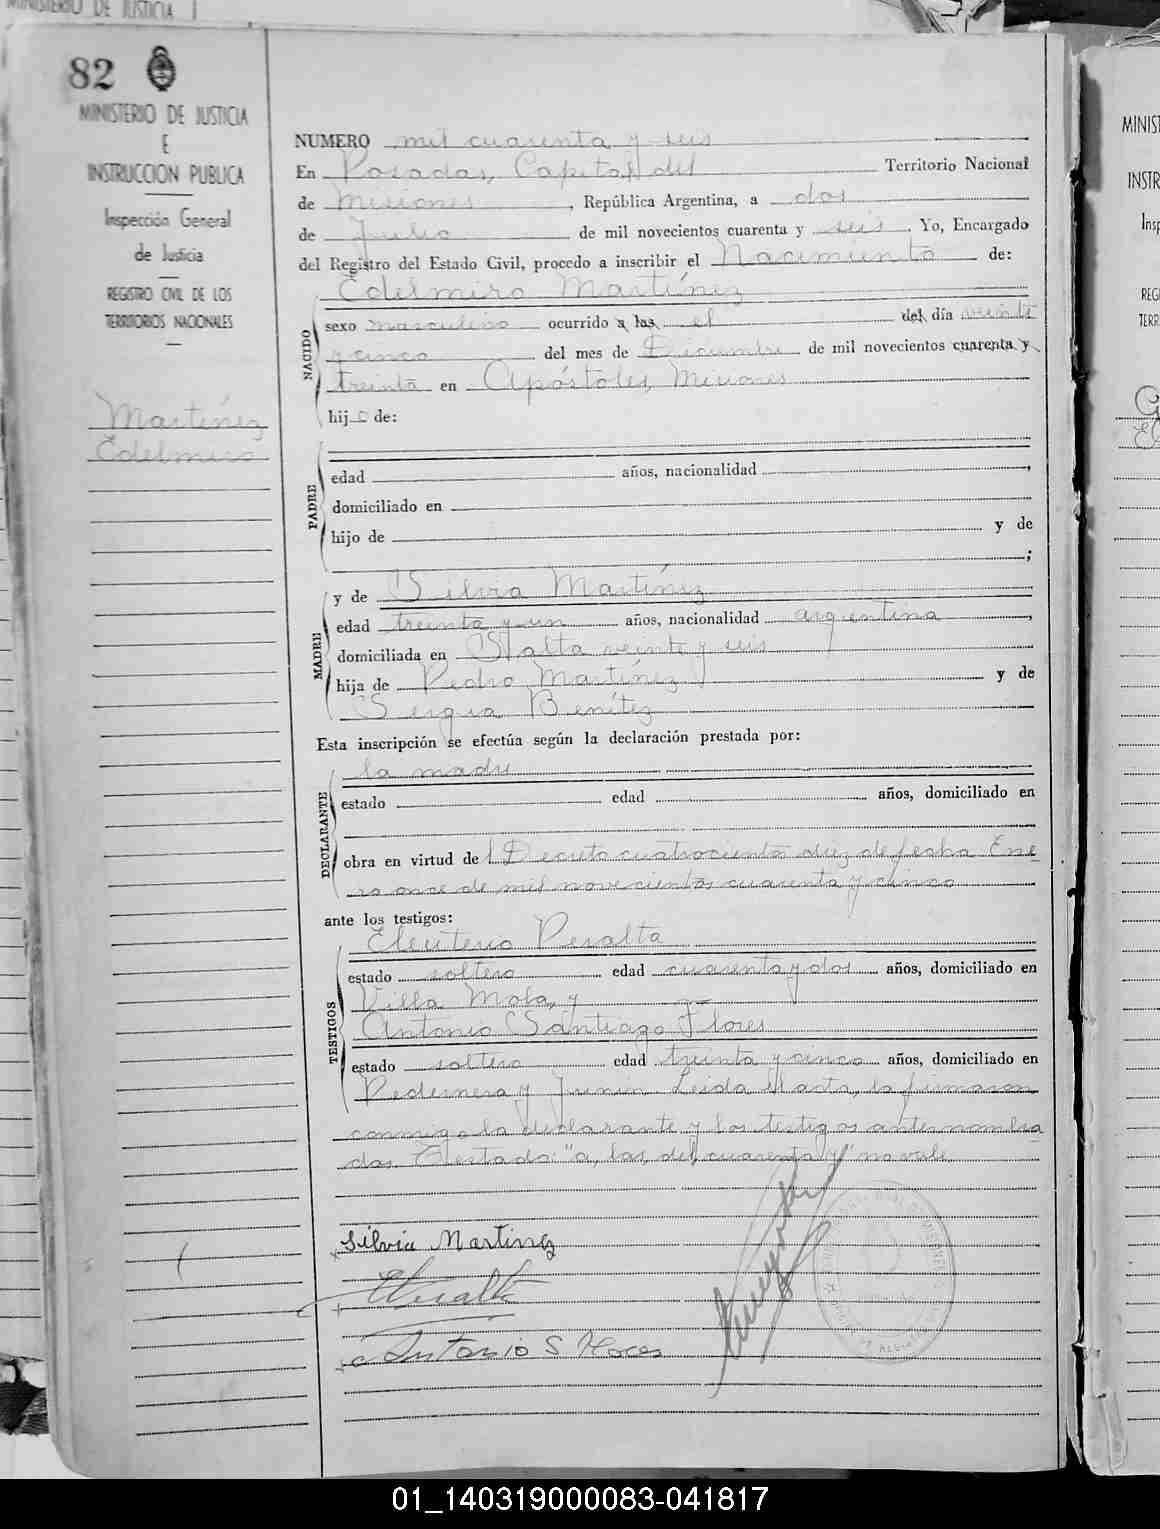 MINISTERIO DE JUSTICIA
82
MINISTERIO DE JUSTICIA
E
INSTRUCCION PUBLICA
Inspección General
de Justicia
REGISTRO CIVIL DE LOS
TERRITORIOS NACIONALES
Martínez
Edelmiro
NUMERO mil cuarenta y seis
En Posadas, Capital del Territorio Nacional
de Misiones, República Argentina, a dos
de Julio de mil novecientos cuarenta y seis. Yo, Encargado
del Registro del Estado Civil, procedo a inscribir el Nacimiento de:
Edelmiro Martínez
NACIDO
sexo masculino ocurrido a las el del día veinti
y cinco del mes de Diciembre de mil novecientos cuarenta y
treinta en Apóstoles, Misiones
hijo de:
PADRE
edad años, nacionalidad ,
domiciliado en
hijo de y de
;
MADRE
y de Silvia Martínez
edad treinta y un años, nacionalidad argentina,
domiciliada en Salta veinte y seis
hija de Pedro Martínez y de
Sergia Benítez
Esta inscripción se efectúa según la declaración prestada por:
la madre
DECLARANTE
estado edad años, domiciliado en
obra en virtud del Decreto cuatrocientos diez de fecha Ene
ro once de mil novecientos cuarenta y cinco
ante los testigos:
Eleuterio Peralta
TESTIGOS
estado soltero edad cuarenta y dos años, domiciliado en
Villa Mola, y
Antonio Santiago Flores
estado soltero edad treinta y cinco años, domiciliado en
Pedernera y Junin Leida el acta, la firmaron
conmigo la declarante y los testigos antes nombra
dos. Testado: "a, las, del, cuarenta y" no vale.
Silvia Martinez
EPeralta
Antonio S Flores
MINIST
INSTR
Insp
REGI
TERR
01_140319000083-041817